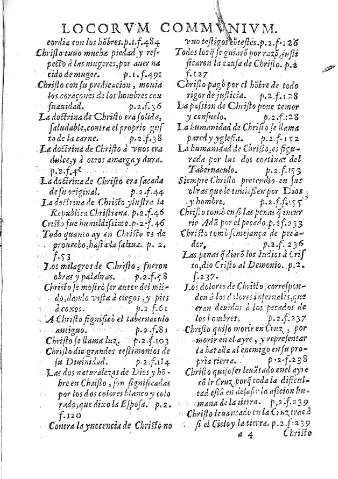 LOCORVM COMMVNIVM.
cordia con los hõbres. p.1.f.484
Christo tuuo mucha piedad y res-
peto a las mugeres, por auer na
cido de muger. p.1.f.492
Christo con su predicacion, monta
los coraçones de los hombres con
suauidad. p.2.f.36
La doctrina de Christo era solida,
saludable, contra el proprio gus-
to de la carne. p.2.f.38
La doctrina de Christo a vnos era
dulce, y à otros amarga y dura.
p.2.f.4
La doctrina de Christo era sacada
de su original. p.2.f.44
La doctrina de Christo ylustra la
Republica Christiana. p.2.f.46
Christo fue humildissimo. p.2.f.46
Todo quanto ay en Christo es de
prouecho, hasta la saliua. p.2.
f.53
Los milagros de Christo, fueron
obras y palabras. p.2.f.58
Christo se mostrò ser autor del mũ-
do, dando vista à ciegos, y pies
à coxos. p.2.f.61
A Christo significaua el tabernaculo
antiguo. p.2.f.81
Christo se llama luz. p.2.f.103
Christo dio grandes testimonios de
su Diuinidad. p.2.f.114
Las dos naturalezas de Dios y hõ-
bre en Christo, son significadas
por los dos colores blanco y colo
rado, que dixo la Esposa. p.2.
f.120
Contra la ynocencia de Christo no
vuo testigos contestes. p.2.f.126
Todos los q̃ se guiarõ por razõ, justi
ficaron la causa de Christo. p.2
f.127
Christo pagò por el hõbre de todo
rigor de justicia. p.2.f.128
La passion de Christo pone temor
y consuelo. p.2.f.128
La humanidad de Christo se llama
pared y yglesia. p.2.f.152
La humanidad de Christo, es figu-
rada por las dos cortinas del
Tabernaculo. p.2.f.153
Siempre Christo pretendio en sus
obras que le tuuiessen por Dios
y hombre. p.2.f.155
Christo tomò en si las penas q̃ incur
rio Adã por el pecado. p.2.f.233
Christo tomò semejança de peca-
dor. p.2.f.236
Las penas q̃ dierõ los Indios à Cris
to, dio Cristo al Demonio. p.2.
f.237
Los dolores de Christo, correspon-
den à los dolores infernales, que
eran deuidos à los pecados de
los hombres. p.2.f.237
Christo quiso morir en Cruz, por
morir en el ayre, y representar
la batalla al enemigo en su pro
pria tierra. p.2.f.238
Christo quiso ser leuãtado en el ay
re ẽ la Cruz, porq̃ toda la dificul-
tad està en desasir la aficion hu-
mana de la tierra. p.2.f.239
Christo leuantado en la Cruz trae à
si el Cielo y la tierra. p.2.f.239
a 4 Christo